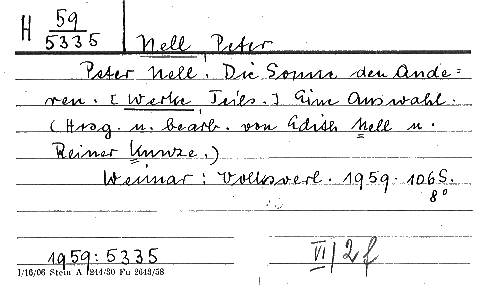 H 59/5335
Nell, Peter
Peter Nell: Die Sonne den Ande=
ren. [Werke, Teils.] Eine Auswahl.
(Hrsg. u. bearb. von Edith Nell u.
Reiner Kunze.)
Weimar: Volksverl. 1959. 106 S.
8°
1959: 5335
VI/2f
I/16/06 Stein A 1244/30 Fu 2643/58